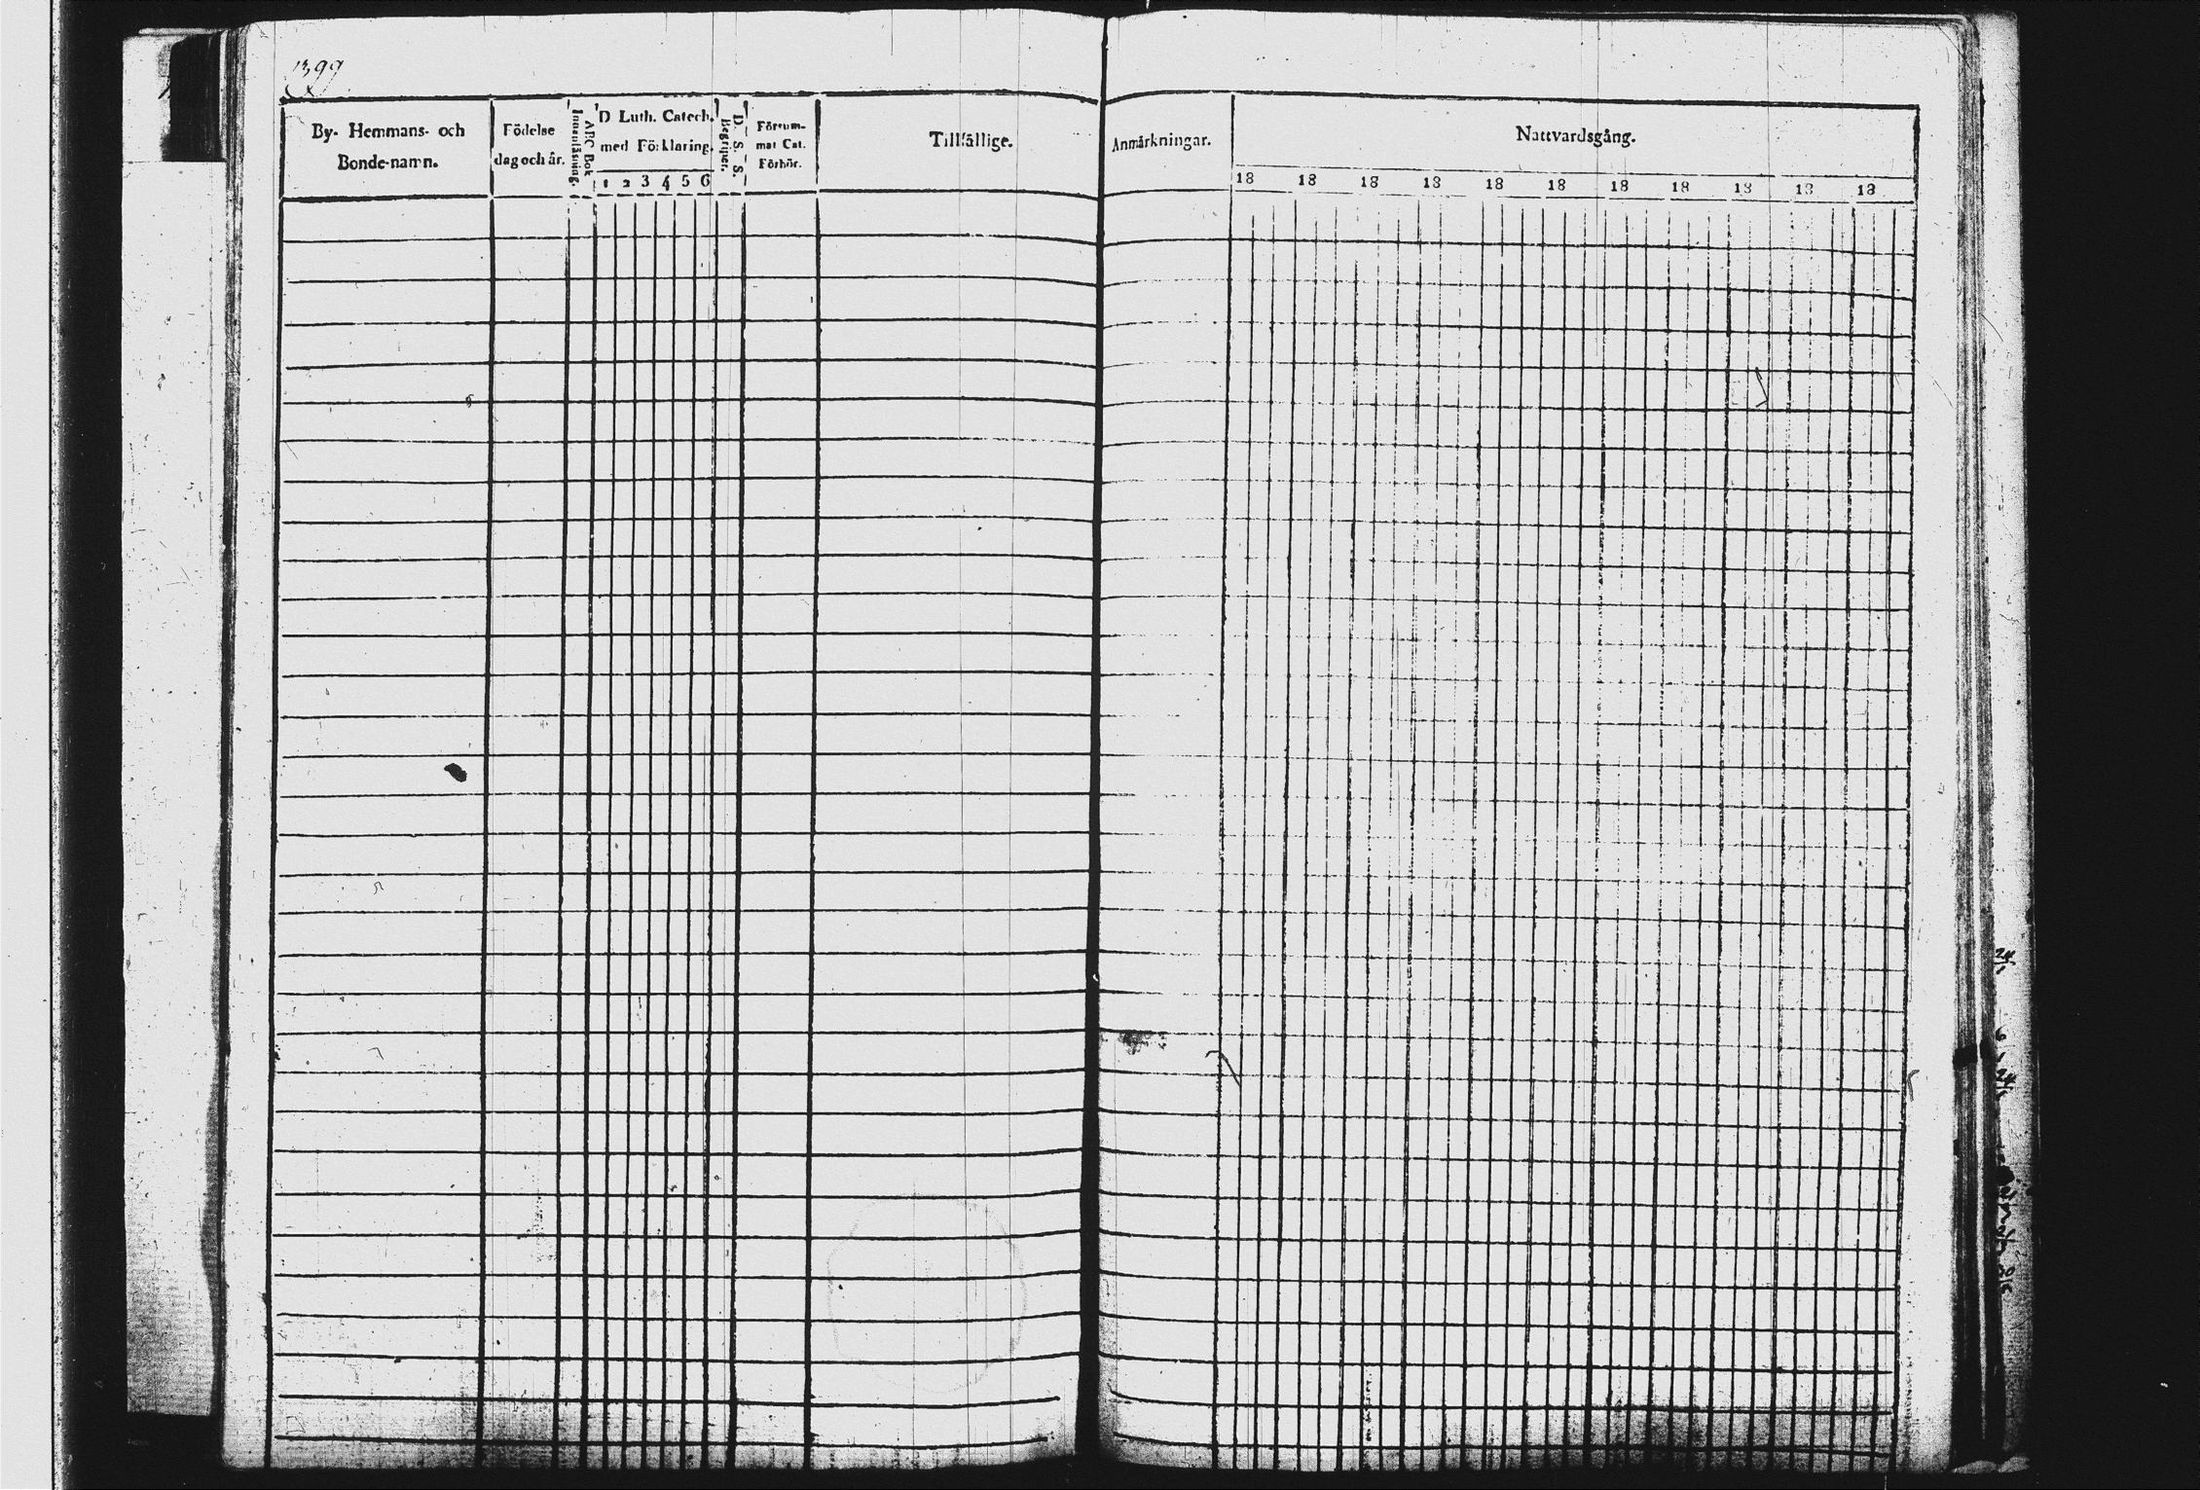 1399
By- Hemmans- och
Bonde-namn.
Födelse
dag och år.
Innanläsning.
ABC Bok
D Luth. Catech.
med Förklaring.
1 2 3 4 5 6
Begriper.
D. S. S.
Försum-
mat Cat.
Förhör.
Tillfällige.
Anmärkningar.
Nattvardsgång.
18 18 18 18 18 18 18 18 18 18 18